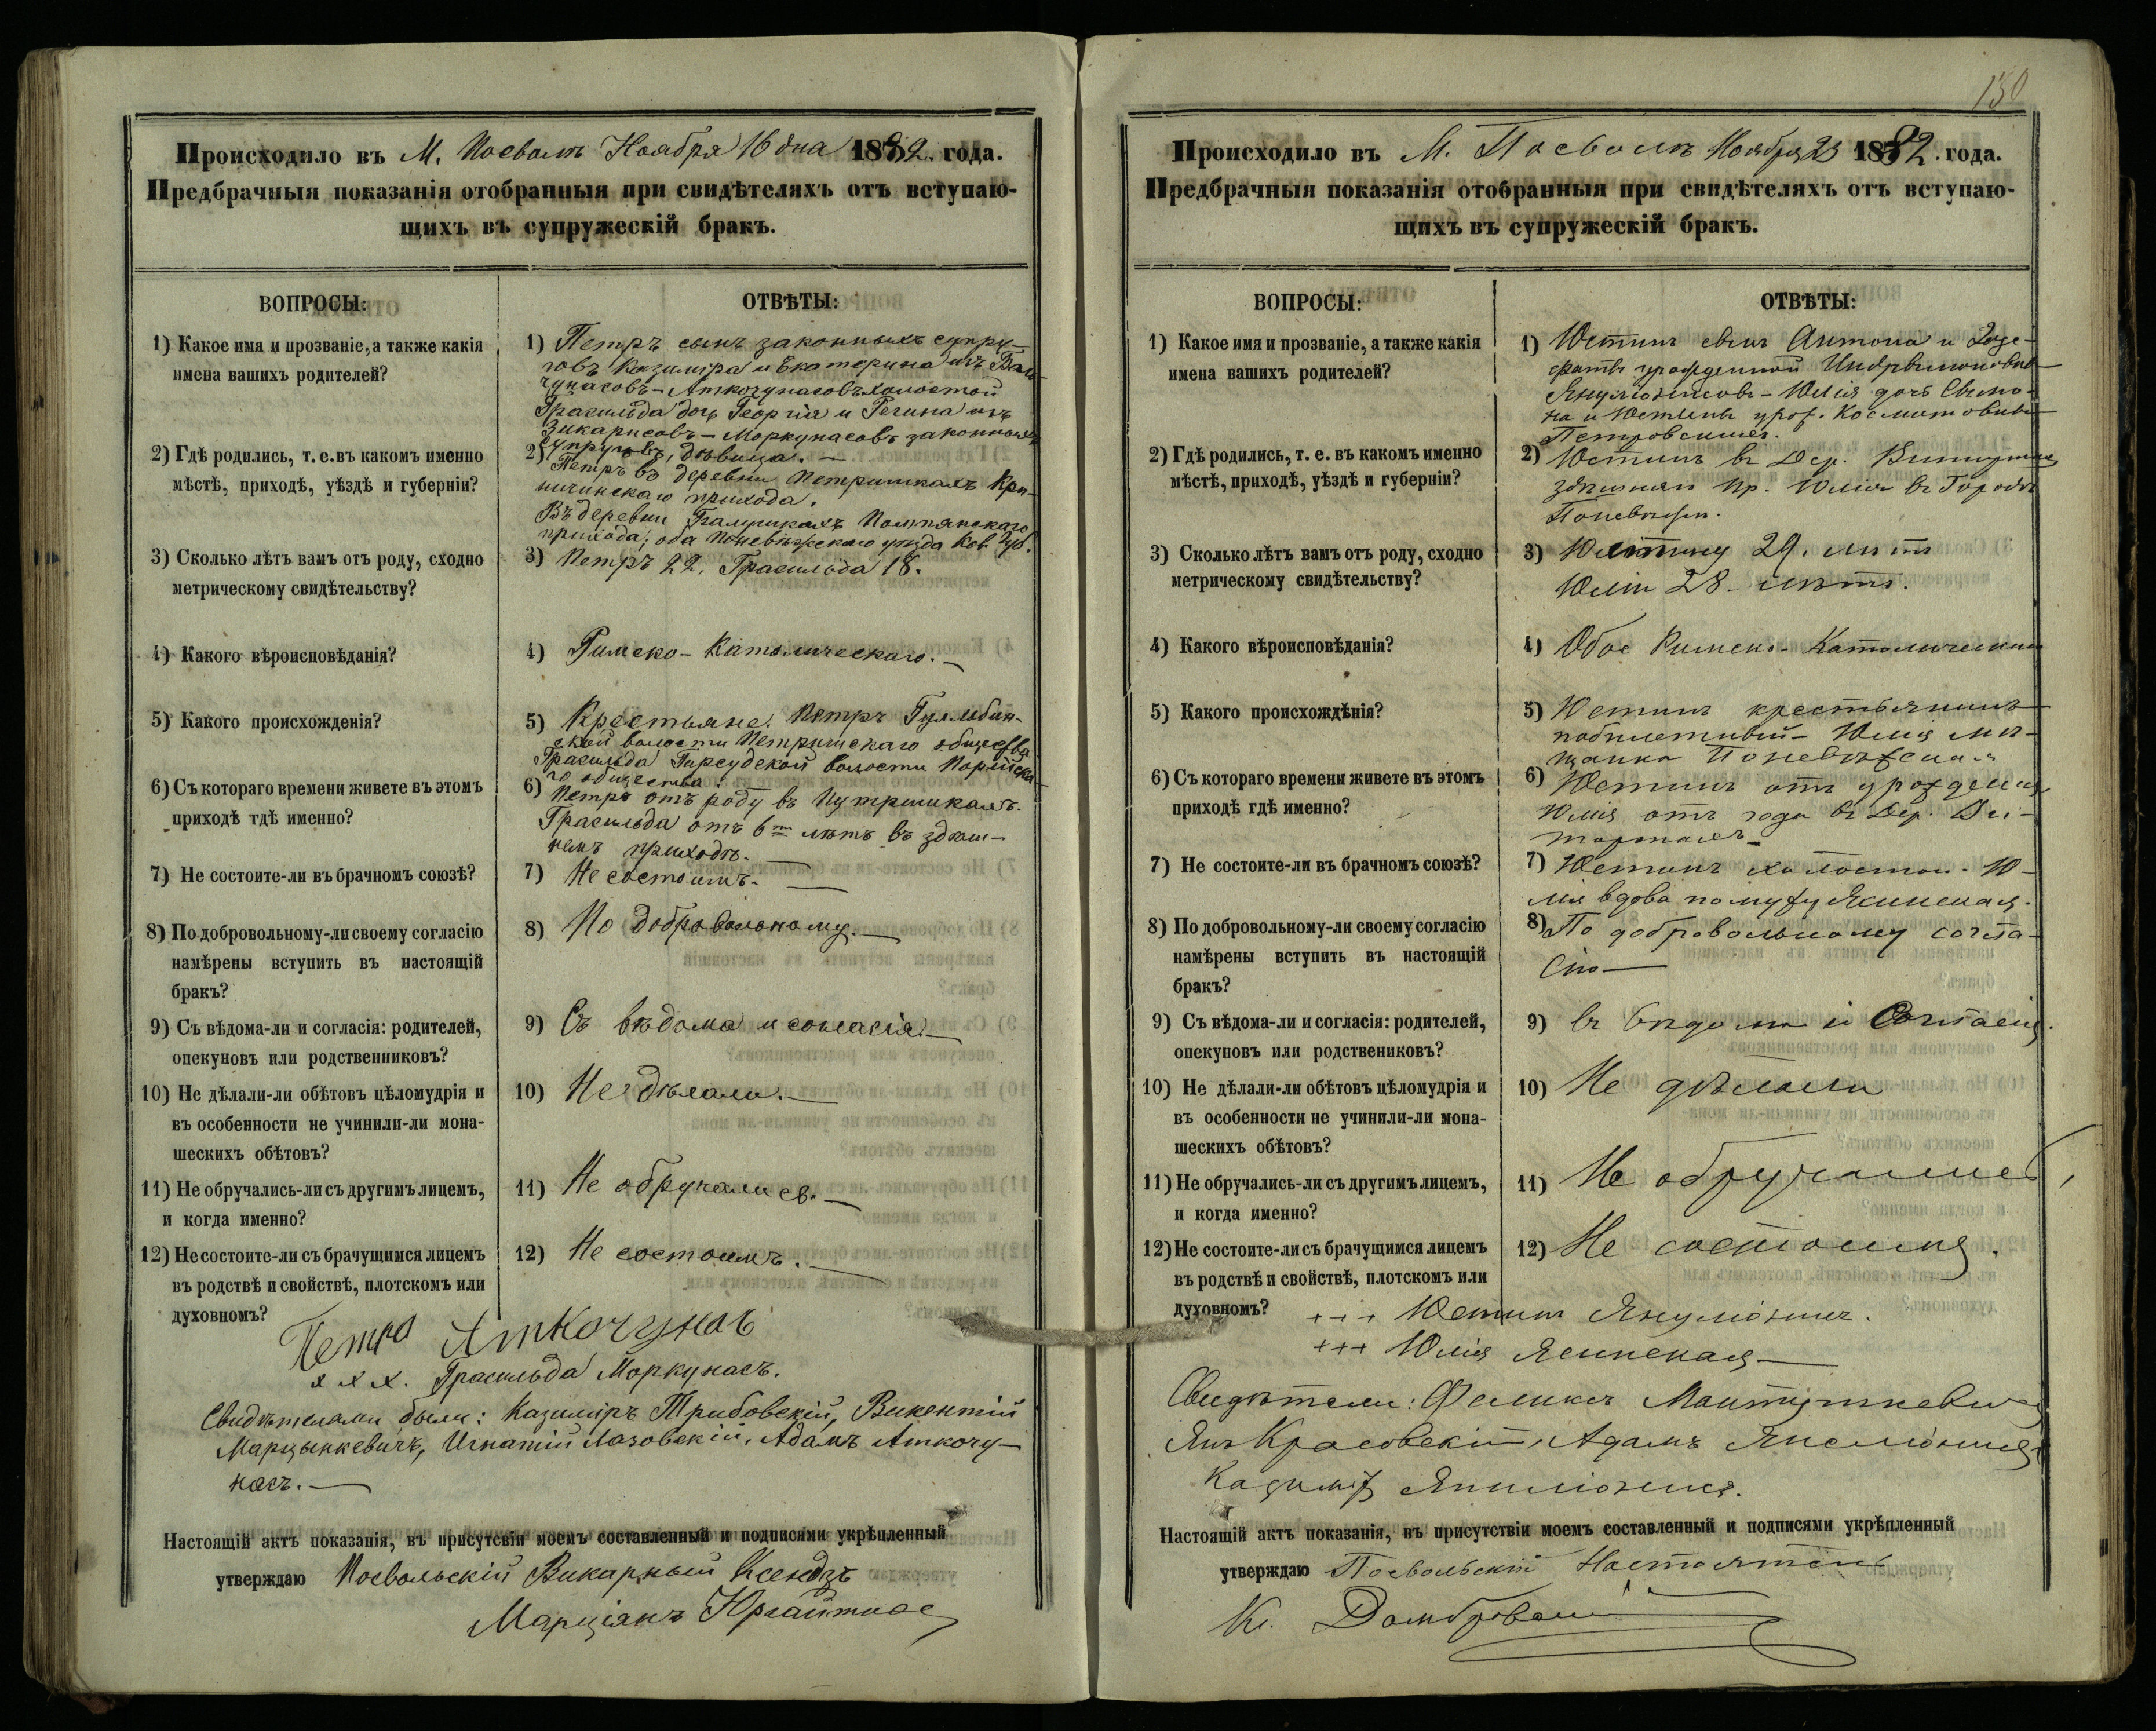 Происходило въ М. Посволъ Ноября 16 дня 1882. года.
Предбрачныя показанія отобранныя при свидѣтеляхъ отъ вступаю-
щихъ въ супружескій бракъ.
ВОПРОСЫ:
ОТВѢТЫ:
1) Какое имя и прозваніе, а также какія
имена вашихъ родителей?
1) Петръ сынъ законныхъ супру-
говъ Казиміра и Екатерина изъ
Аткочунасовъ холостой
Грасильда дочь Георгія и Регина изъ
Зикарисовъ – Моркунасовъ законныхъ
супруговъ, дѣвица. –
2) Гдѣ родились, т. е. въ какомъ именно
мѣстѣ, приходѣ, уѣздѣ и губерніи?
2) Петръ въ деревни Петришкахъ Кри-
ничинскаго прихода.
Въ деревни Помпянскаго
прихода; оба Поневѣжскаго уѣзда Ков. губ.
3) Сколько лѣтъ вамъ отъ роду, сходно
метрическому свидѣтельству?
3) Петръ 22, Грасильда 18.
4) Какого вѣроисповѣданія?
4) Римско – Католическаго. –
5) Какого происхожденія?
5) Крестьяне. Петръ Гулльбин-
ской волости Петришскаго общества
Грасильда волости
го общества.
6) Съ котораго времени живете въ этомъ
приходѣ гдѣ именно?
6) Петръ отъ роду въ Путришкахъ.
Грасильда отъ 6ти лѣтъ въ здѣш-
немъ приходѣ. –
7) Не состоите-ли въ брачномъ союзѣ?
7) Не состоимъ. –
8) По добровольному-ли своему согласію
намѣрены вступить въ настоящій
бракъ?
8) По добровольному. –
9) Съ вѣдома-ли и согласія: родителей,
опекуновъ или родственниковъ?
9) Съ вѣдома и согласія. –
10) Не дѣлали-ли обѣтовъ цѣломудрія и
въ особенности не учинили-ли мона-
шескихъ обѣтовъ?
10) Не дѣлали. –
11) Не обручались-ли съ другимъ лицемъ,
и когда именно?
11) Не обручались. –
12) Не состоите-ли съ брачущимся лицемъ
въ родствѣ и свойствѣ, плотскомъ или
духовномъ?
12) Не состоимъ. –
Петра Аткочунас
х х х. Грасильда Моркунасъ.
Свидѣтелами были: Казиміръ Трибовскій, Викентій
Марцынкевичъ, Игнатій Лазовскій, Адамъ Аткочу-
насъ. –
Настоящій актъ показанія, въ присутсвіи моемъ составленный и подписями укрѣпленный
утверждаю Посвольскій Викарный Ксендзъ
Марціянъ
130
Происходило въ М. Посволъ Ноября 23 1882. года.
Предбрачныя показанія отобранныя при свидѣтеляхъ отъ вступаю-
щихъ въ супружескій бракъ.
ВОПРОСЫ:
ОТВѢТЫ:
1) Какое имя и прозваніе, а также какія
имена вашихъ родителей?
1) Юстинъ сынъ Антона и
урожденной
Юлія дочь Сымо-
на и Юстины урож.
Петровскихъ.
2) Гдѣ родились, т. е. въ какомъ именно
мѣстѣ, приходѣ, уѣздѣ и губерніи?
2) Юстинъ въ Дер.
здѣшняго пр. Юлія въ Городѣ
Поневѣжѣ.
3) Сколько лѣтъ вамъ отъ роду, сходно
метрическому свидѣтельству?
3) Юстину 29. лѣтъ
Юліи 28 – лѣтъ.
4) Какого вѣроисповѣданія?
4) Обое Римско – Католическаго
5) Какого происхождѣнія?
5) Юстинъ крестьянинъ
Юлія мѣ-
щанка Поневѣжска.
6) Съ котораго времени живете въ этомъ
приходѣ гдѣ именно?
6) Юстинъ отъ урожденія
Юлія отъ года въ Дер.
7) Не состоите-ли въ брачномъ союзѣ?
7) Юстинъ холостой. Ю-
лія вдова по мужу Ясинская.
8) По добровольному-ли своему согласію
намѣрены вступить въ настоящій
бракъ?
8) По добровольному согла-
сію –
9) Съ вѣдома-ли и согласія: родителей,
опекуновъ или родствениковъ?
9) въ вѣдома и согласія.
10) Не дѣлали-ли обѣтовъ цѣломудрія и
въ особенности не учинили-ли мона-
шескихъ обѣтовъ?
10) Не дѣлали
11) Не обручались-ли съ другимъ лицемъ,
и когда именно?
11) Не обручались
12) Не состоите-ли съ брачущимся лицемъ
въ родствѣ и свойствѣ, плотскомъ или
духовномъ?
12) Не состоимъ.
+++ Юстинъ
+++ Юлія Ясинская –
Свидѣтели: Феликсъ
Янъ Красовскій, Адамъ
Казиміръ
Настоящій актъ показанія, въ присутствіи моемъ составленный и подписями укрѣпленный
утверждаю Посвольскій Настоятель
Кс. Домбровскій